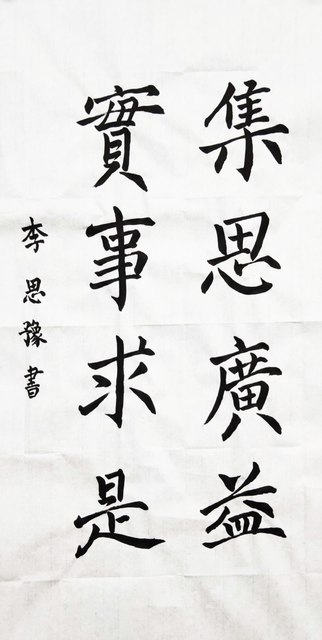 集思廣益
實事求是
李思豫書